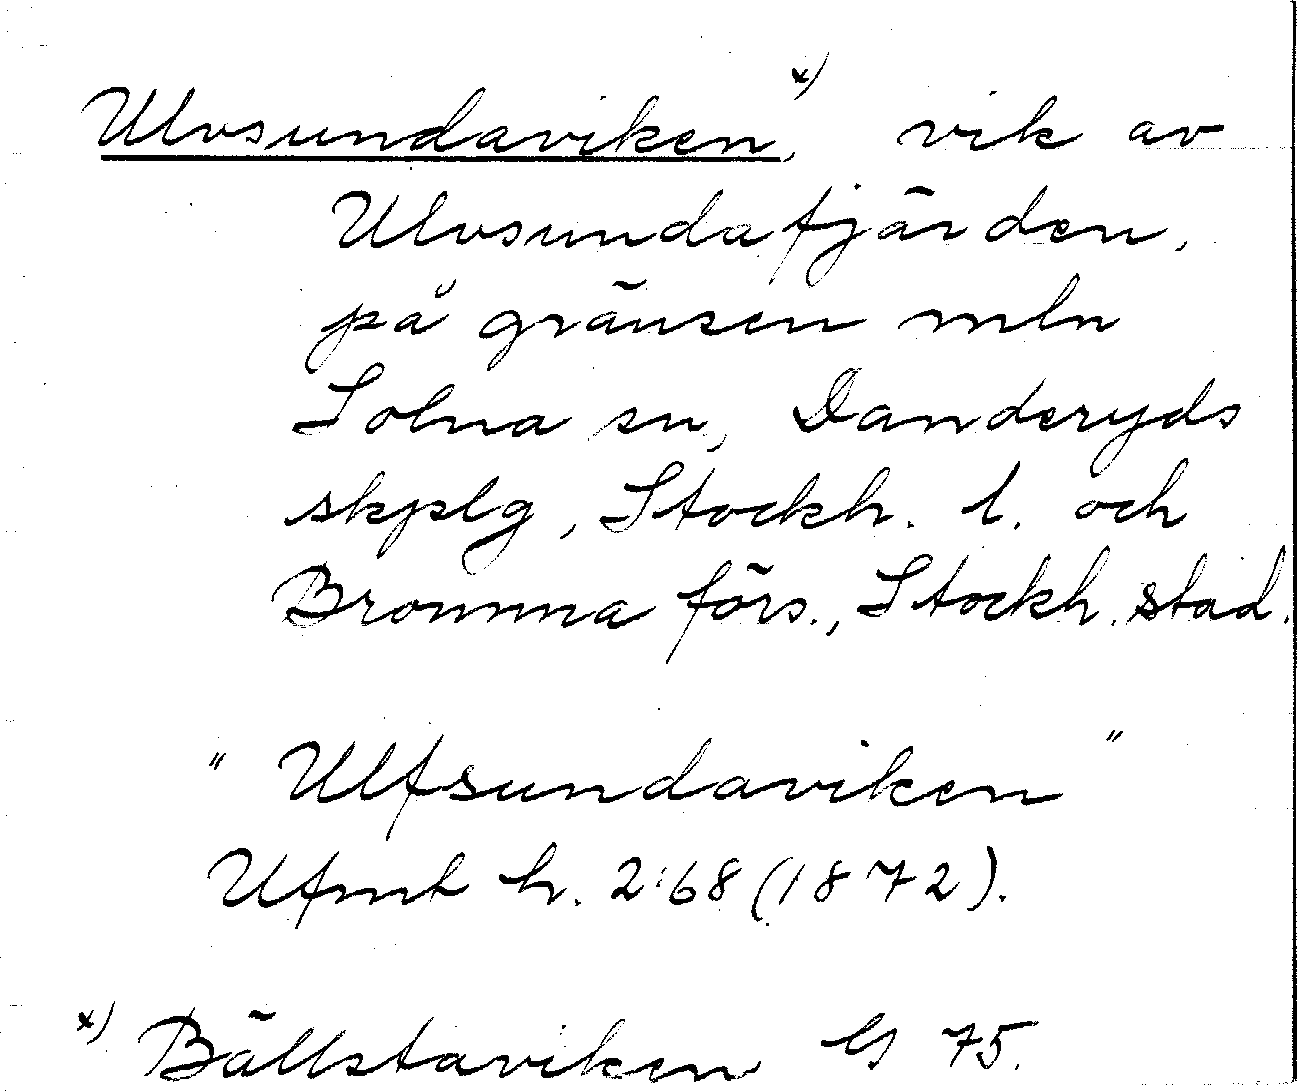 Ulvsundaviken,ˣ⁾ vik av
Ulvsundafjärden,
på gränsen mln
Solna sn, Danderyds
skplg, Stockh. l. och
Bromma förs., Stockh. stad.
"Ulfsundaviken"
Ufmt h. 2:68 (1872).
ˣ⁾ Bällstaviken 75.